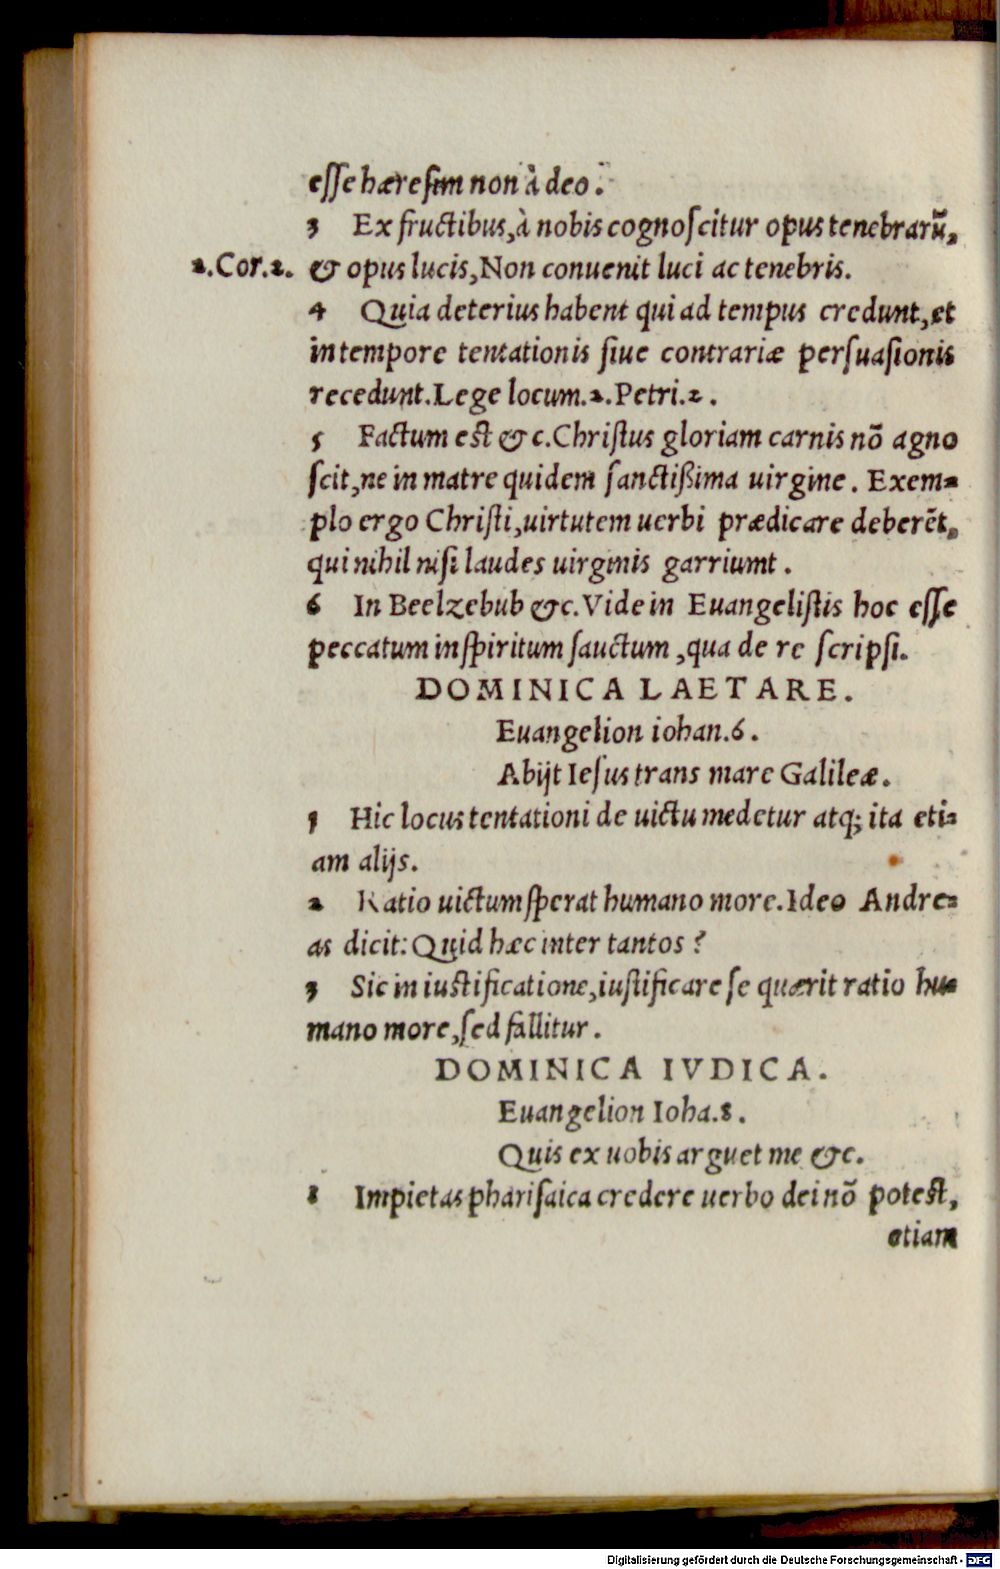 esse hæresim non à deo.
3 Ex fructibus, à nobis cognoscitur opus tenebrarũ,
2.Cor.2. & opus lucis, Non conuenit luci ac tenebris.
4 Quia deterius habent qui ad tempus credunt, et
in tempore tentationis siue contrariæ persuasionis
recedunt. Lege locum. 2. Petri. 2.
5 Factum est &c. Christus gloriam carnis nõ agno
scit, ne in matre quidem sanctißima uirgine. Exem-
plo ergo Christi, uirtutem uerbi prædicare deberẽt,
qui nihil nisi laudes uirginis garriumt.
6 In Beelzebub &c. Vide in Euangelistis hoc esse
peccatum in spiritum sauctum, qua de re scripsi.
DOMINICA LAETARE.
Euangelion iohan. 6.
Abijt Iesus trans mare Galileæ.
1 Hic locus tentationi de uictu medetur atq; ita eti-
am alijs.
2 Ratio uictum sperat humano more. Ideo Andre-
as dicit: Quid hæc inter tantos?
3 Sic in iustificatione, iustificare se quærit ratio hu-
mano more, sed fallitur.
DOMINICA IVDICA.
Euangelion Ioha. 8.
Quis ex uobis arguet me &c.
1 Impietas pharisaica credere uerbo dei nõ potest,
etiam
Digitalisierung gefördert durch die Deutsche Forschungsgemeinschaft - DFG